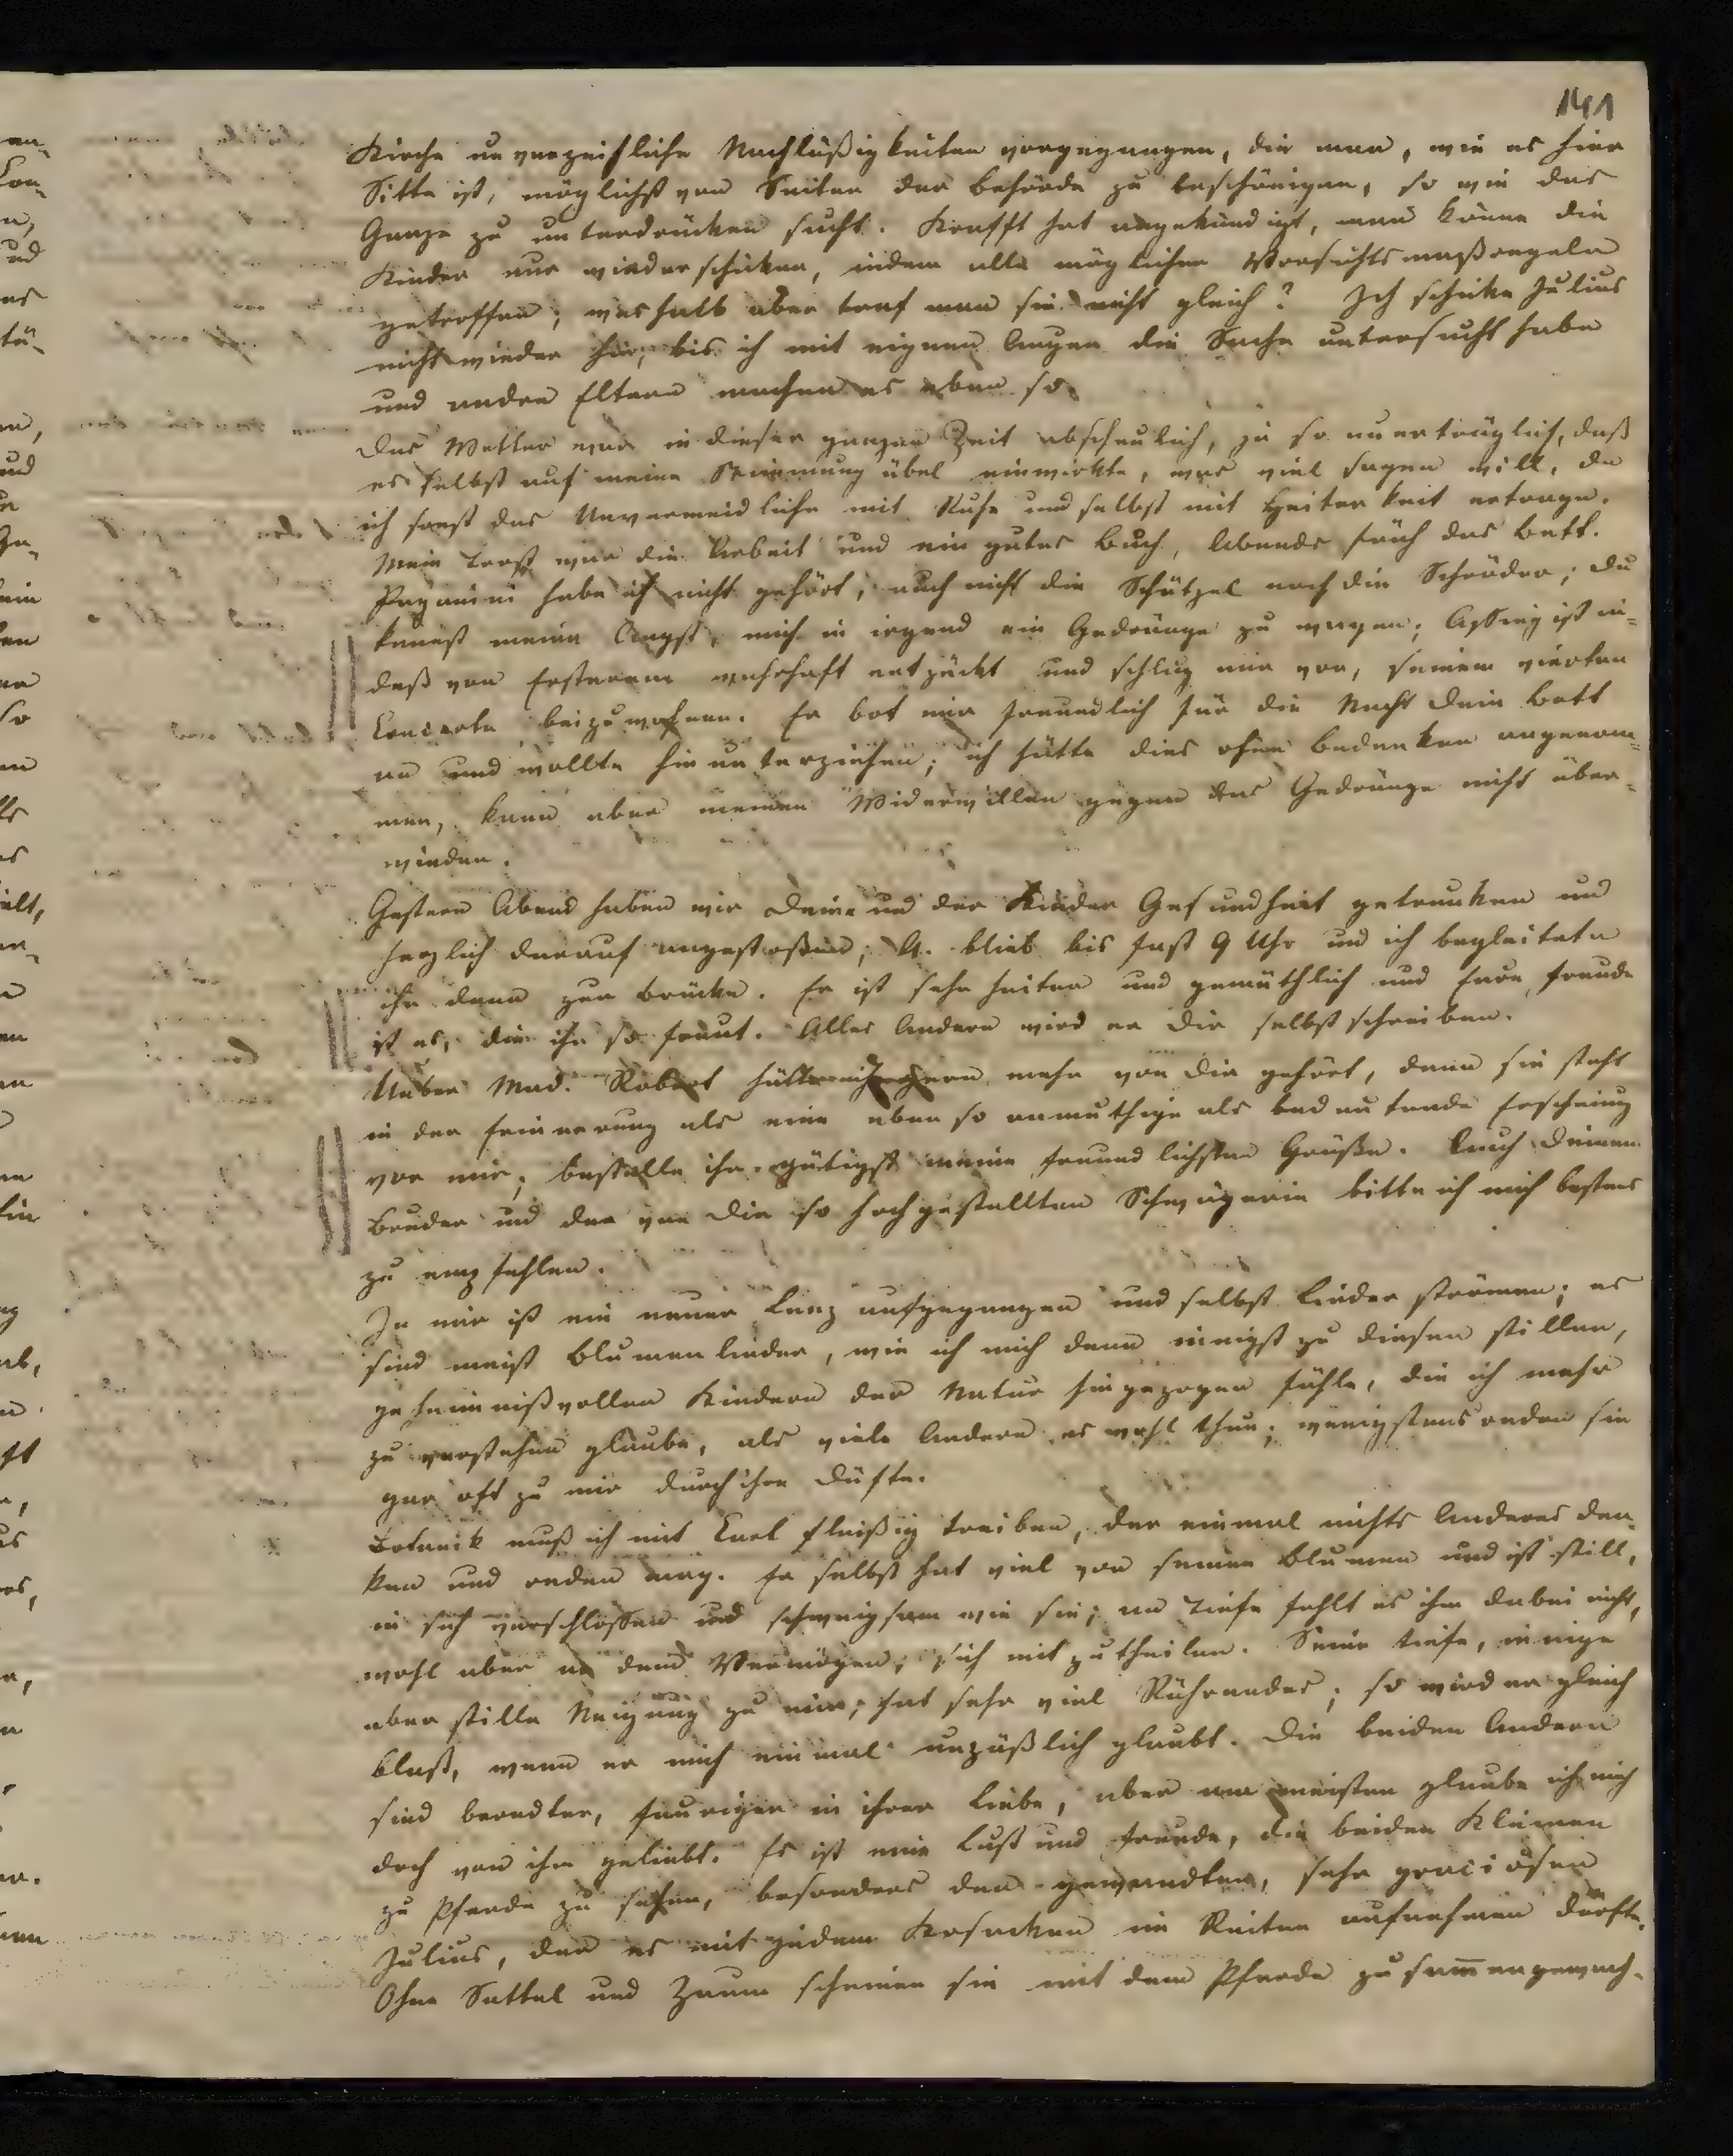 141
Kirche unverzeihliche Nachläßigkeiten vorgegangen, die man, wie es hier
Sitte ist, möglichst von Seiten der Behörde zu beschönigen, so wie das
Ganze zu unterdrücken sucht. Krafft hat angekündigt, man könne die
Kinder nur wiederschicken, indem alle möglichen Vorsichtsmaßregeln
getroffen; weshalb aber traf man sie nicht gleich? Ich schicke Julius
nicht wieder hin, bis ich mit eignen Augen die Sache untersucht habe
und andre Eltern machen es eben so.
Das Wetter war in dieser ganzen Zeit abscheulich, ja so unerträglich, daß
es selbst auf meine Stimmung übel einwirkte, was viel sagen will, da
ich sonst das Unvermeidliche mit Ruhe und selbst mit Heiterkeit ertrage.
Mein Trost war die Arbeit und ein gutes Buch, Abends früh das Bett.
Paganini habe ich nicht gehört, auch nicht die Schätzel noch die Schröder; Du
kennst meine Angst, mich in irgend ein Gedränge zu wagen; Assing ist in-
deß von Ersterem wahrhaft entzückt und schlug mir vor, seinem vierten
Concerte beizuwohnen. Er bot mir freundlich für die Nacht Dein Bett
an und wollte hinunterziehen; ich hätte dies ohne Bedenken angenom-
men, kann aber meinen Widerwillen gegen das Gedränge nicht über-
winden.
Gestern Abend haben wir Deine und der Kinder Gesundheit getrunken und
herzlich darauf angestoßen; A. blieb bis fast 9 Uhr und ich begleitete
ihn dann zur Brücke. Er ist sehr heiter und gemüthlich und Eure Freude
ist es, die ihn so freut. Alles Andere wird er Dir selbst schreiben.
Ueber Mad. Robert hätte ich gern mehr von Dir gehört, denn sie steht
in der Erinnerung als eine eben so anmuthige als bedeutende Erscheinung
vor mir; bestelle ihr gütigst meine freundlichsten Grüße. Auch Deinem
Bruder und der von Dir so hochgestellten Schwägerin bitte ich mich bestens
zu empfehlen.
In mir ist ein neuer Lenz aufgegangen und selbst Lieder strömen; es
sind meist Blumenlieder, wie ich mich denn innigst zu diesen stillen,
geheimnißvollen Kindern der Natur hingezogen fühle, die ich mehr
zu verstehen glaube, als viele Andere es wohl thun; wenigstens reden sie
gar oft zu mir durch ihre Düfte.
Botanik muß ich mit Carl fleißig treiben, der einmal nichts Anderes den-
ken und reden mag. Er selbst hat viel von seinen Blumen und ist still,
in sich verschlossen und schweigsam wie sie; an Tiefe fehlt es ihm dabei nicht,
wohl aber an dem Vermögen, sich mitzutheilen. Seine tiefe, innige
aber stille Neigung zu mir, hat sehr viel Rührendes; so wird er gleich
blaß, wenn er mich einmal unpäßlich glaubt. Die beiden Andern
sind beredter, feuriger in ihrer Liebe, aber am meisten glaube ich mich
doch von ihm geliebt. Es ist eine Lust und Freude, die beiden Kleinen
zu Pferde zu sehen, besonders den gewandten, sehr graciösen
Julius, der es mit jedem Kosacken im Reiten aufnehmen dürfte.
Ohne Sattel und Zaum scheinen sie mit dem Pferde zusammengewach-